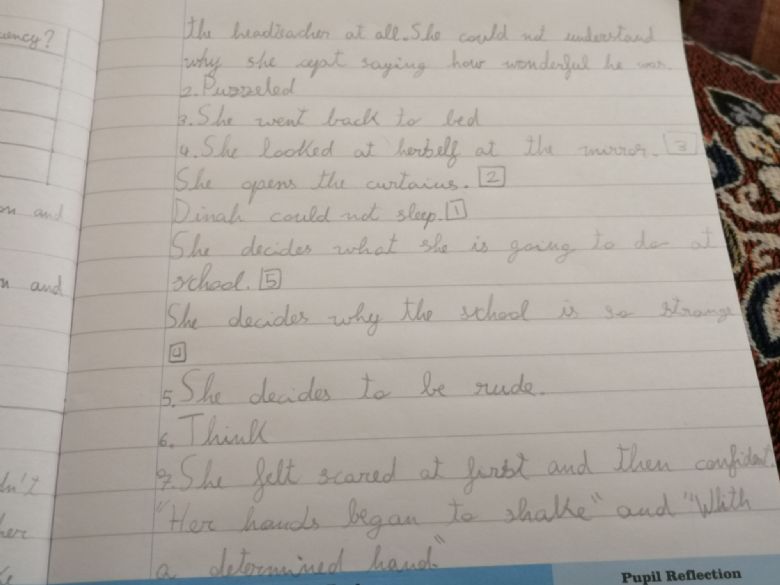 uency?
the headteacher at all. She could not understand
why she cept saying how wonderful he was.
2. Puzzeled
3. She went back to bed
4. She looked at herself at the mirror. 3
She opens the curtains. 2
Dinah could not sleep. 1
on and
She decides what she is going to do at
n and
school. 5
She decides why the school is so strange
4
5. She decides to be rude.
6. Think
7. She felt scared at first and then confident
dn't
"Her hands began to shake" and "Whith
her
a determined hand."
Pupil Reflection